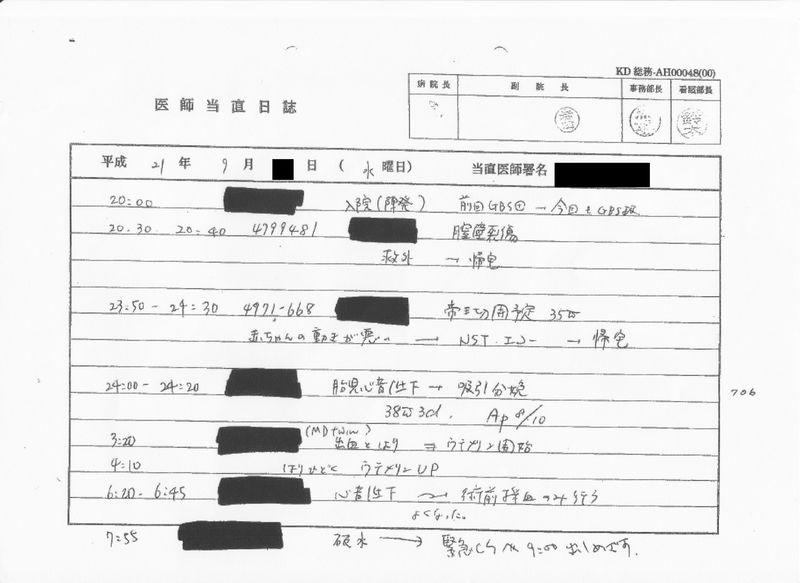 KD 総務-AH00048(00)
病院長 副院長 事務部長 看護部長
医師当直日誌
平成 21 年 9 月 日 ( 水 曜日) 当直医師署名
20:00 入院(陣発) 前回GBS⊕ → 今回もGBS
20.30 20:40 4799481 腟壁裂傷
救外 → 帰宅
23:50 - 24:30 4971-668 帝王切開予定 35w
赤ちゃんの動きが悪い → NST.エコー → 帰宅
24:00 - 24:20 胎児心音低下 → 吸引分娩
38w3d. Ap 8/10
706
(MD twin)
3:20 出血とはり ⇒ ウテメリン開始
4:10 はりひどく ウテメリンUP
6:20 - 6:45 心音低下 → 術前採血のみ行う
よくなった。
7:55 破水 → 緊急CS 9:00